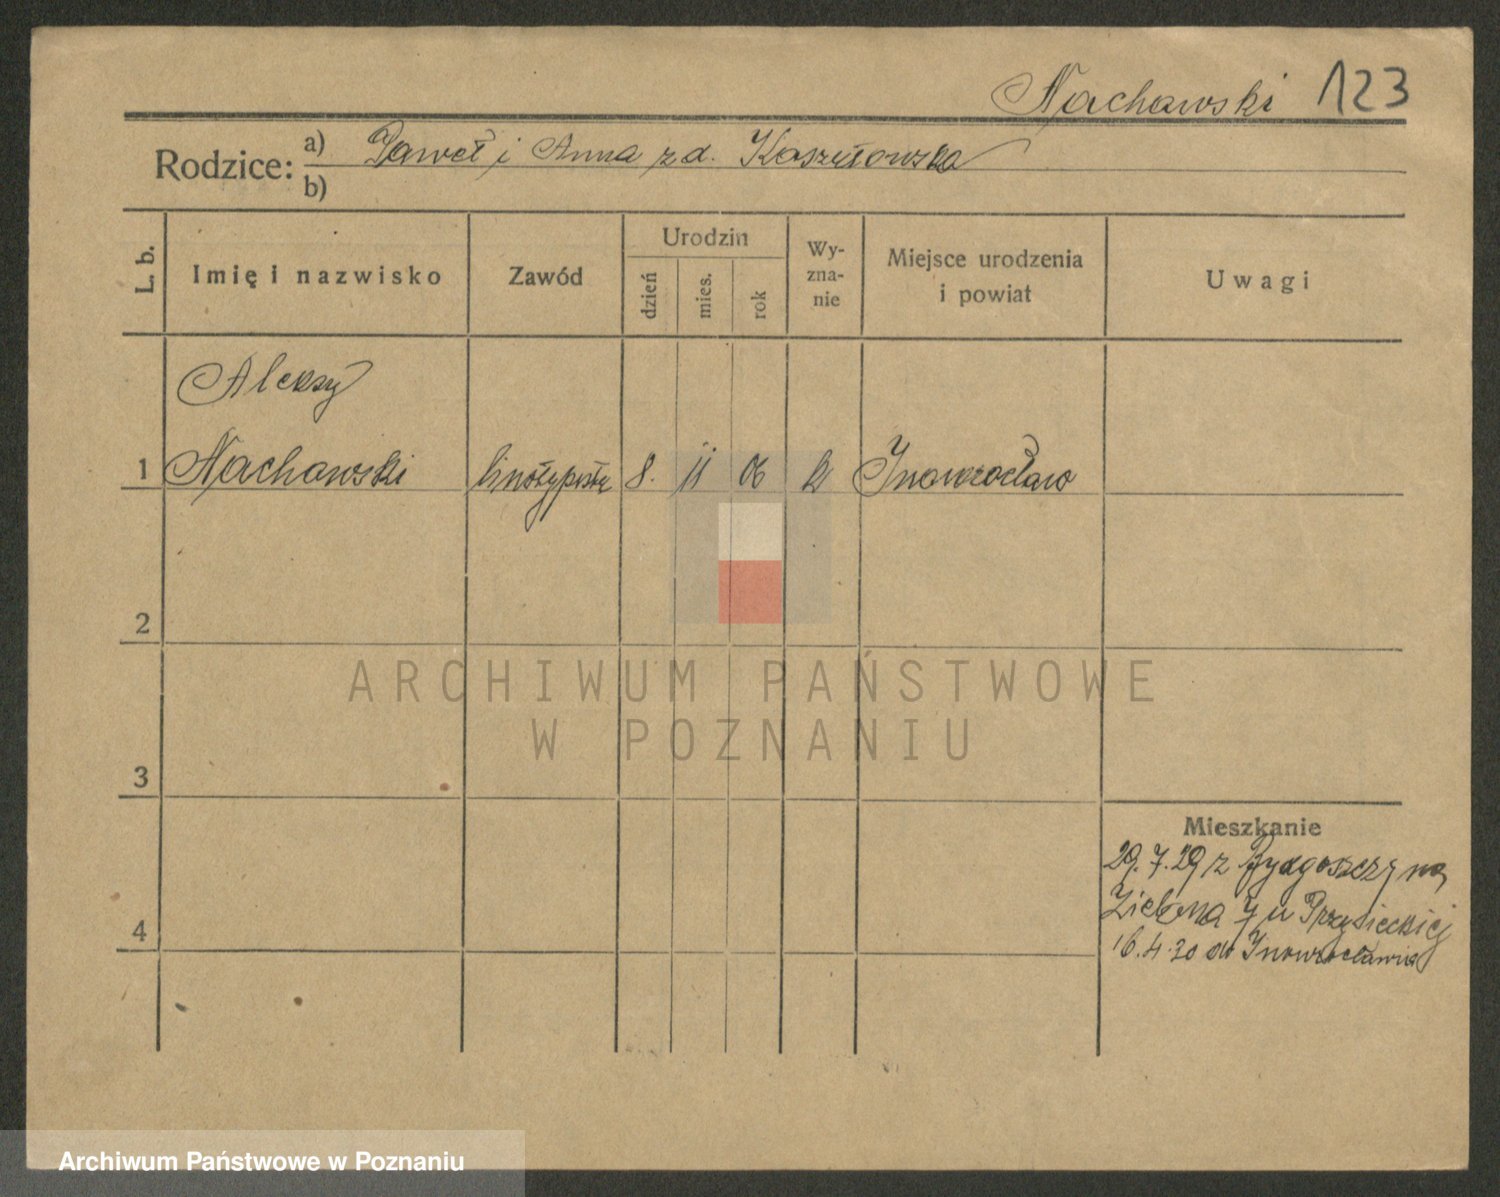 Nachawski 123
Rodzice: a) Paweł i Anna z d.
b)
L. b.
Imię i nazwisko
Zawód
Urodzin
dzień
mies.
rok
Wy-
zna-
nie
Miejsce urodzenia
i powiat
Uwagi
Aleksy
1 Nachawski linotypista 8. 11 06 k Inowrocław
2
ARCHIWUM PAŃSTWOWE
W POZNANIU
3
Mieszkanie
29.7.29 z Bydgoszczy na
Zielona 7 u Przysieckiej
4
16.4.30 do Inowrocławia
Archiwum Państwowe w Poznaniu